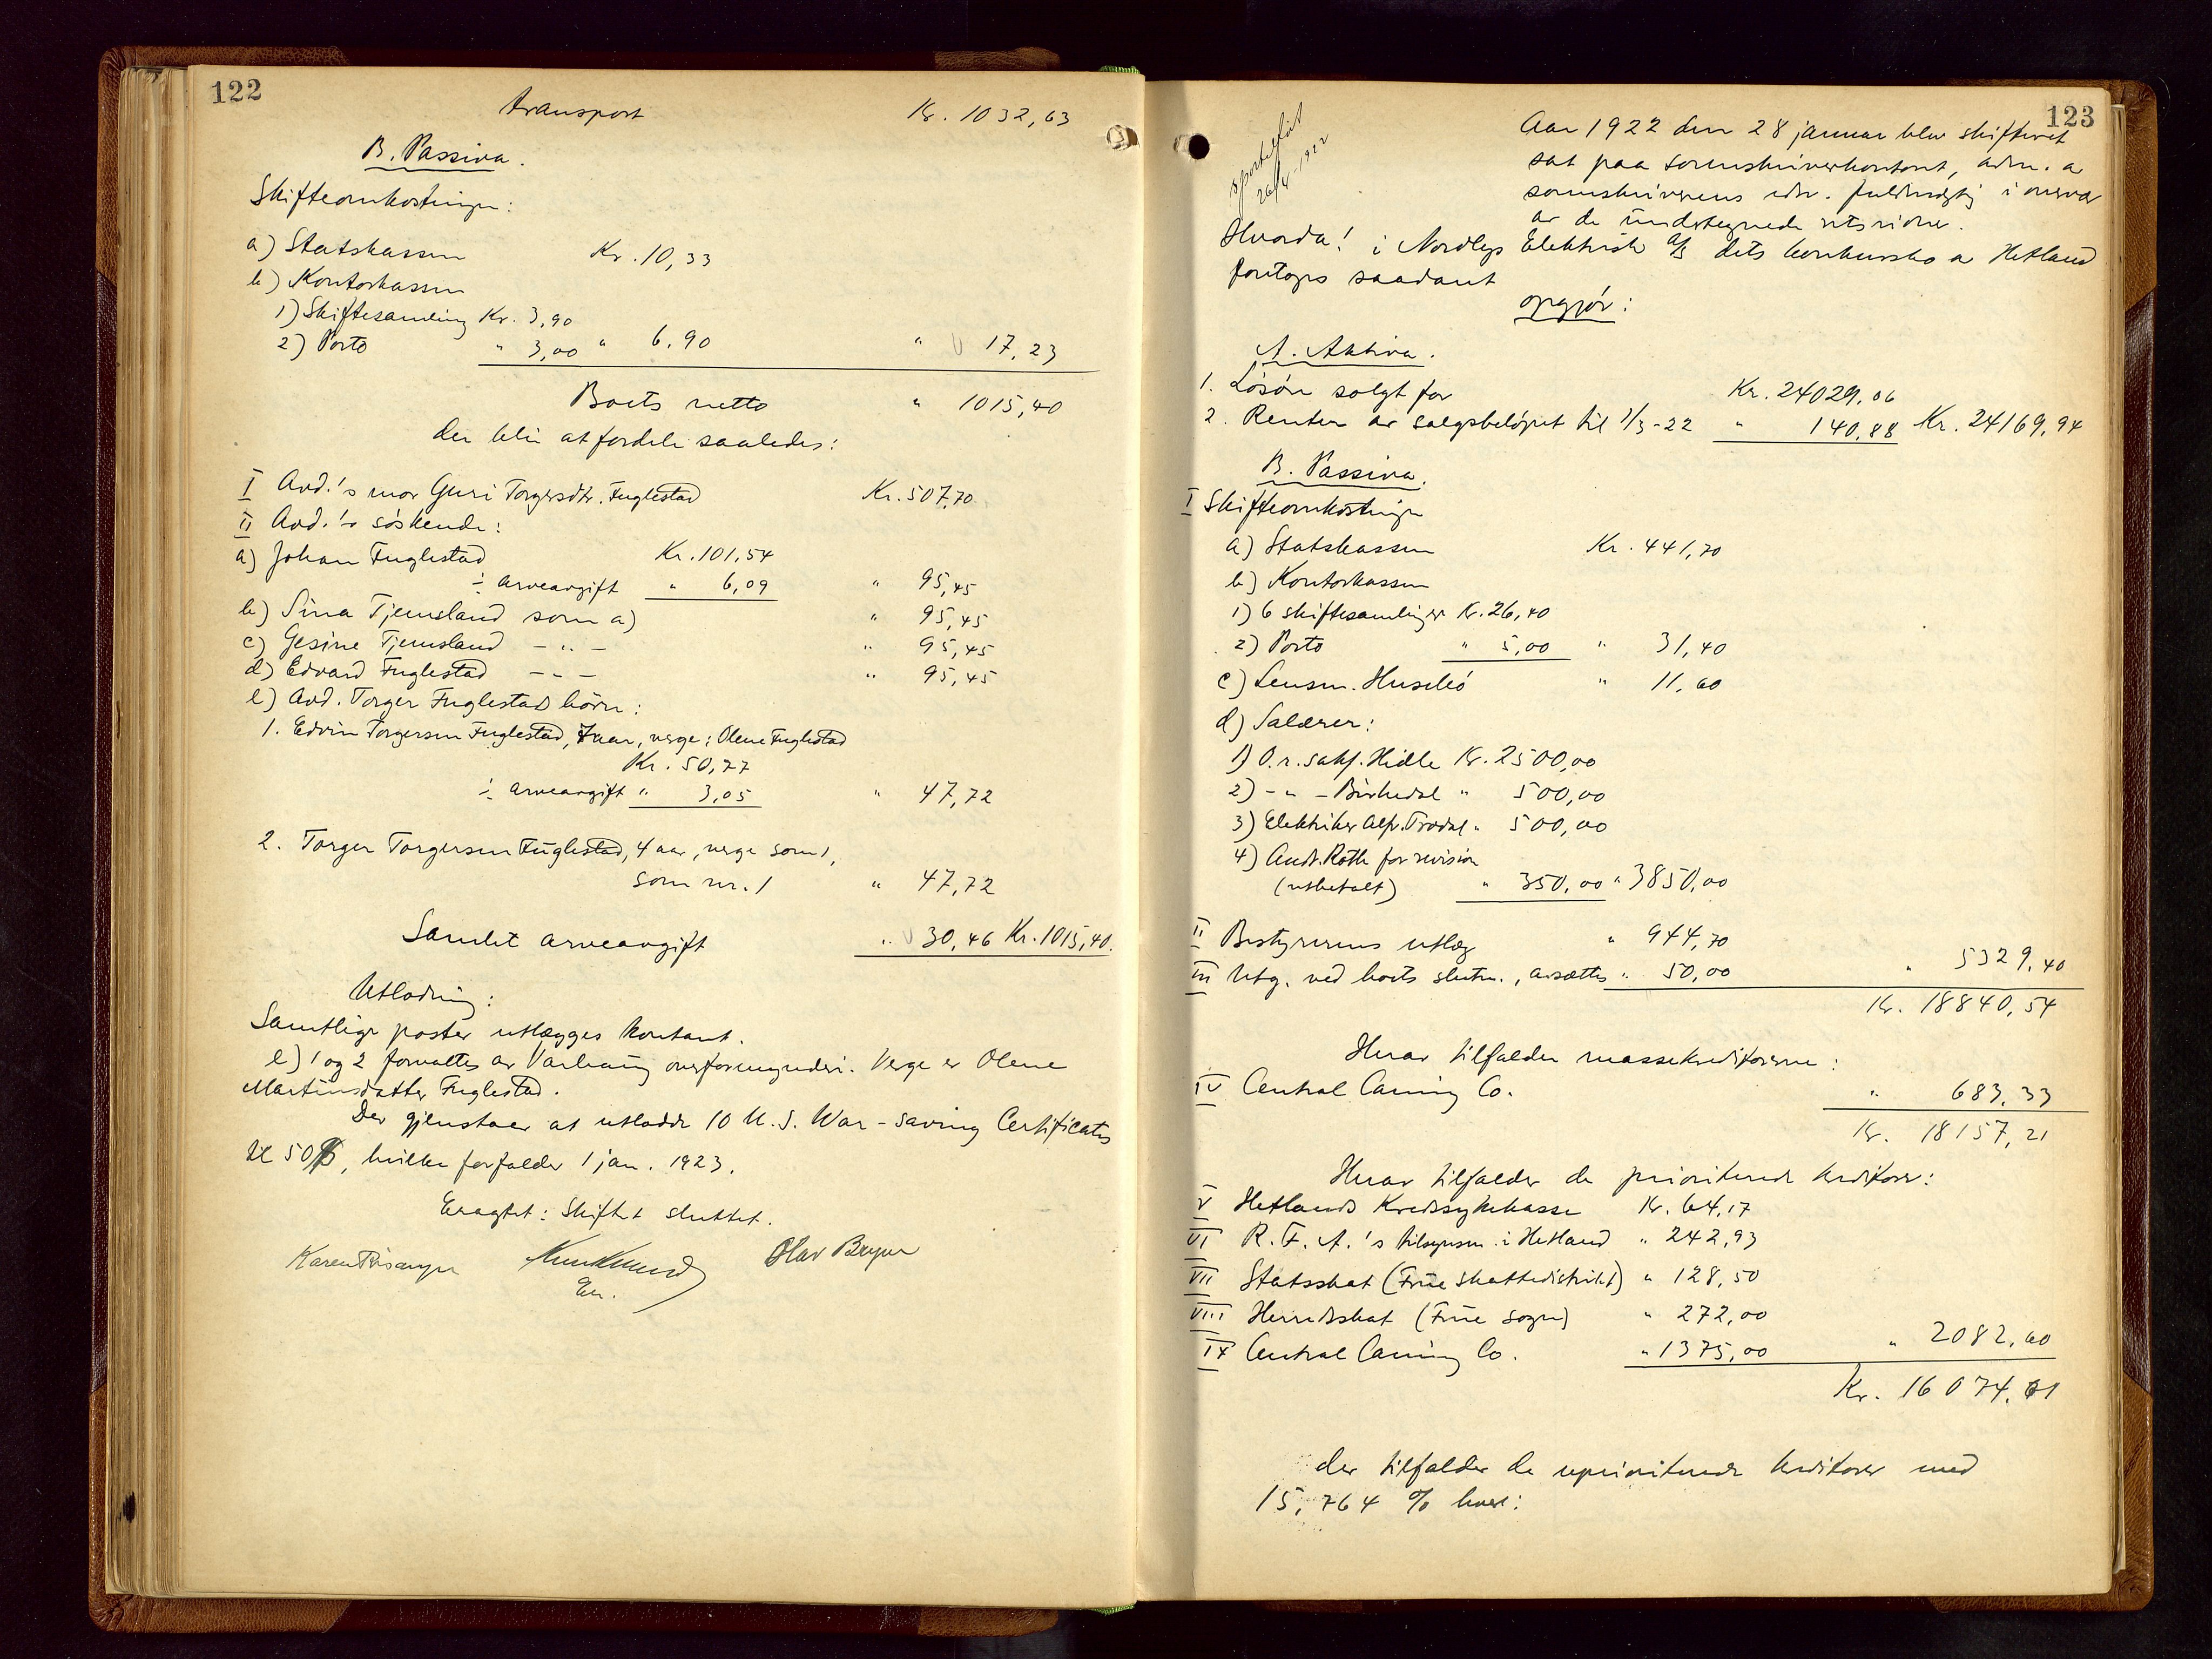 122
transport Kr. 1032,63
B. Passiva.
Skifteomkostninger:
a) Statskassen Kr. 10,33
b) Kontorkassen
1) Skiftesamling Kr. 3,90
2) Porto " 3,00 " 6,90 " 17,23
Boets netto " 1015,40
der blir at fordele saaledes:
I Avd.'s mor Guri Torgersdtr. Fuglestad Kr. 507,70
II Avd.'s søskende:
a) Johan Fuglestad Kr. 101,54
÷ arveavgift " 6,09 " 95,45
b) Sina Tjemsland som a) " 95,45
c) Gesine Tjemsland - " - " 95,45
d) Edvard Fuglestad - " - " 95,45
e) Avd. Torger Fuglestads børn:
1. Edvin Torgersen Fuglestad, 7 aar, verge: Olene Fuglestad
Kr. 50,77
÷ arveavgift " 3,05 " 47,72
2. Torger Torgersen Fuglestad, 4 aar, verge som 1,
som nr. 1 " 47,72
Samlet arveavgift " 30,46 Kr. 1015,40.
Utlodning:
Samtlige poster utlægges kontant.
e) 1 og 2 forvaltes av Varhaug overformynderi. Verge er Olene
Martinsdatter Fuglestad.
Der gjenstaar at utlodde 10 U.S. War-Saving Certificates
til 50 $, hvilke forfalder 1 jan. 1923.
Eragtet: Skiftet sluttet.
Olav Bryne
Em.
123
26/4-1922
Aar 1922 den 28 januar blev skifteret
sat paa sorenskriverkontoret, adm. a
sorenskriverens edsv. fuldmægtig i overvær
av de undertegnede retsvidne.
Hvorda! i Nordlys Elektrisk A/S dets konkursbo a Hetland
foretoges saadant
opgjør:
A. Aktiva.
1. Løsøre solgt for Kr. 24029,06
2. Renter av salgsbeløpet til 1/3-22 " 140,88 Kr. 24169,94
B. Passiva.
I Skifteomkostninger
a) Statskassen Kr. 441,70
b) Kontorkassen
1) 6 skiftesamlinger Kr. 26,40
2) Porto " 5,00 " 31,40
c) Lensm. Husebø " 11,60
d) Salærer:
1) O.r.sakf. Hidle Kr. 2500,00
2) - " - Birkedal " 500,00
3) Elektriker Alfr. Trædal " 500,00
4) Andr. Roth for revision
(utbetalt) " 350,00 " 3850,00
II Bestyrerens utlæg " 944,70
III Utg. ved boets slutn., avsættes " 50,00 " 5329,40
Kr. 18840,54
Herav tilfalder massekreditorerne:
IV Central Caning Co. " 683,33
Kr. 18157,21
Herav tilfalder de prioriterede kreditorer:
V Hetlands Kredssykekasse Kr. 64,17
VI R.F.A.'s tilsynsm. i Hetland " 242,93
VII Statsskat (Frue skattedistrikt) " 128,50
VIII Herredsskat (Frue sogn) " 272,00
IX Central Caning Co. " 1375,00 " 2082,60
Kr. 16074,61
der tilfalder de uprioriterede kreditorer med
15,764 % hver: